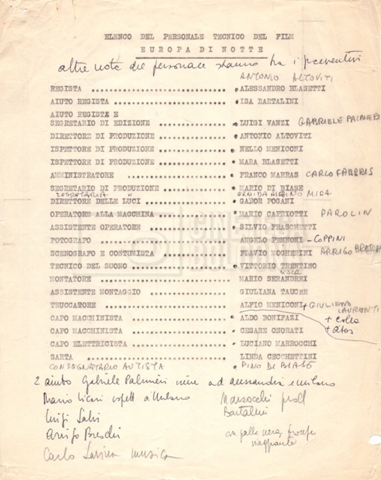 ELENCO DEL PERSONALE TECNICO DEL FILM
EUROPA DI NOTTE
altre note del personale stanno tra i preventivi
ANTONIO ALTOVITI
REGISTA ALESSANDRO BLASETTI
AIUTO REGISTA ISA BARTALINI
AIUTO REGISTA E
SEGRETARIO DI EDIZIONE LUIGI VANZI GABRIELE PALMIERI
DIRETTORE DI PRODUZIONE ANTONIO ALTOVITI
ISPETTORE DI PRODUZIONE NELLO MENICONI
ISPETTORE DI PRODUZIONE MARA BLASETTI
AMMINISTRATORE FRANCO MARRAS CARLO FABBRAS
SEGRETARIO DI PRODUZIONE MARIO DI BIASE
SEGRETARIA MIDA
DIRETTORE DELLE LUCI GABOR POGANI
OPERATORE ALLA MACCHINA MARIO CAPRIOTTI PAROLIN
ASSISTENTE OPERATORE SILVIO FRASCHETTI
FOTOGRAFO ANGELO PENNONI COPPINI
SCENOGRAFO E COSTUMISTA FLAVIO MOGHERINI ARRIGO BRESCHI
TECNICO DEL SUONO VITTORIO TRENTINO
MONTATORE MARIO SERANDREI
ASSISTENTE MONTAGGIO GIULIANA TAUCER
TRUCCATORE ALFIO MENICONI + GIULIANO LAURENTI
CAPO MACCHINISTA ALDO BONIFASI
CAPO MACCHINISTA CESARE ONORATI
CAPO ELETTRICISTA LUCIANO MARROCCHI
SARTA LINDA CECCHETTINI
AUTISTA PINO DI BIASE
2 aiuto Gabriele Palmieri
Mario a Milano Marrocchi
Luigi Bartalini
Arrigo Breschi
Carlo Savina musica